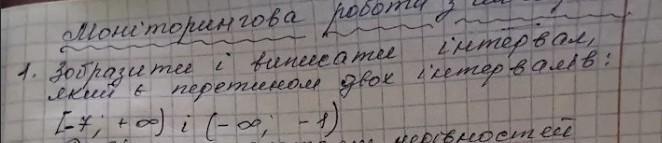 Моніторингова робота з
1. Зобразити і виписати інтервал,
який є перетином двох інтервалів:
[-7; +∞) і (-∞; -1)
нерівностей